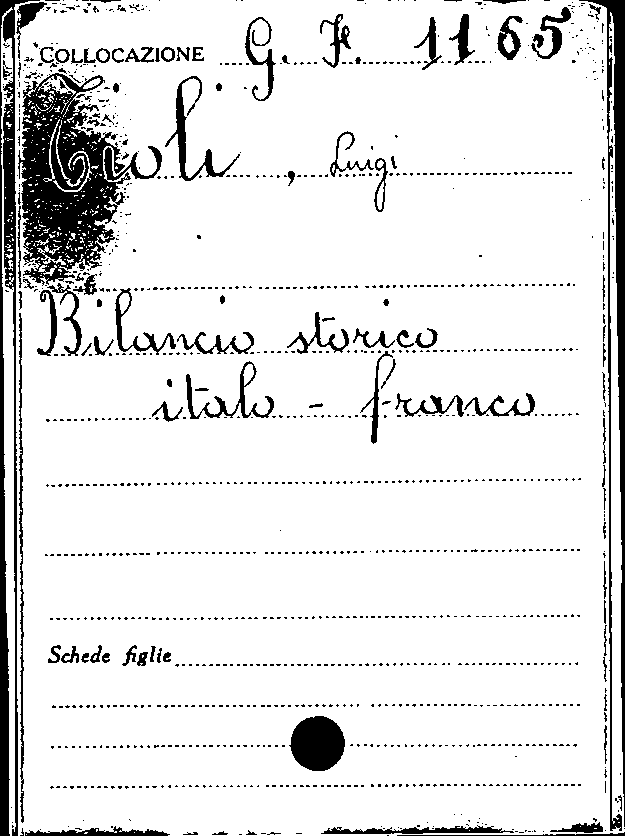 COLLOCAZIONE G. F. 1165
Tioli, Luigi
Bilancio storico
italo - franco
Schede figlie